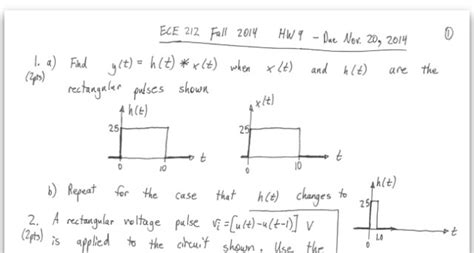 ECE 212 Fall 2014 HW9 - Due Nov. 20, 2014 ①
1. a) Find y(t) = h(t) * x(t) when x(t) and h(t) are the
(2pts) rectangular pulses shown
h(t) x(t)
25 25
0 10 t 0 10 t
b) Repeat for the case that h(t) changes to
h(t)
25
0 1.0 t
2. A rectangular voltage pulse vi = [u(t) - u(t-1)] V
(2pts) is applied to the circuit shown. Use the